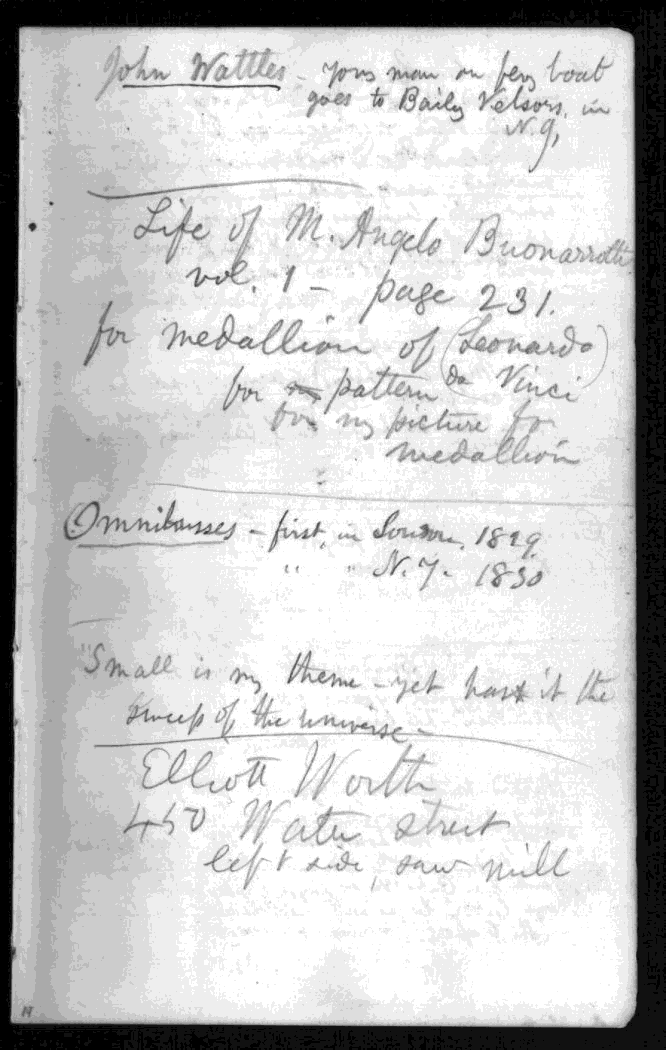 John Wattles - young man on ferry boat
goes to Baily Velsors, in
N. Y,
Life of M. Angelo Buonarrotti
vol. 1 - page 231.
for medallion of (Leonardo
da Vinci)
for pattern
for my picture for
medallion
Omnibusses - first, in London, 1829.
" " N. Y. 1830
"Small is my theme - yet has it the
sweep of the universe -
Elliott Worth
450 Water street
left side, saw mill
19